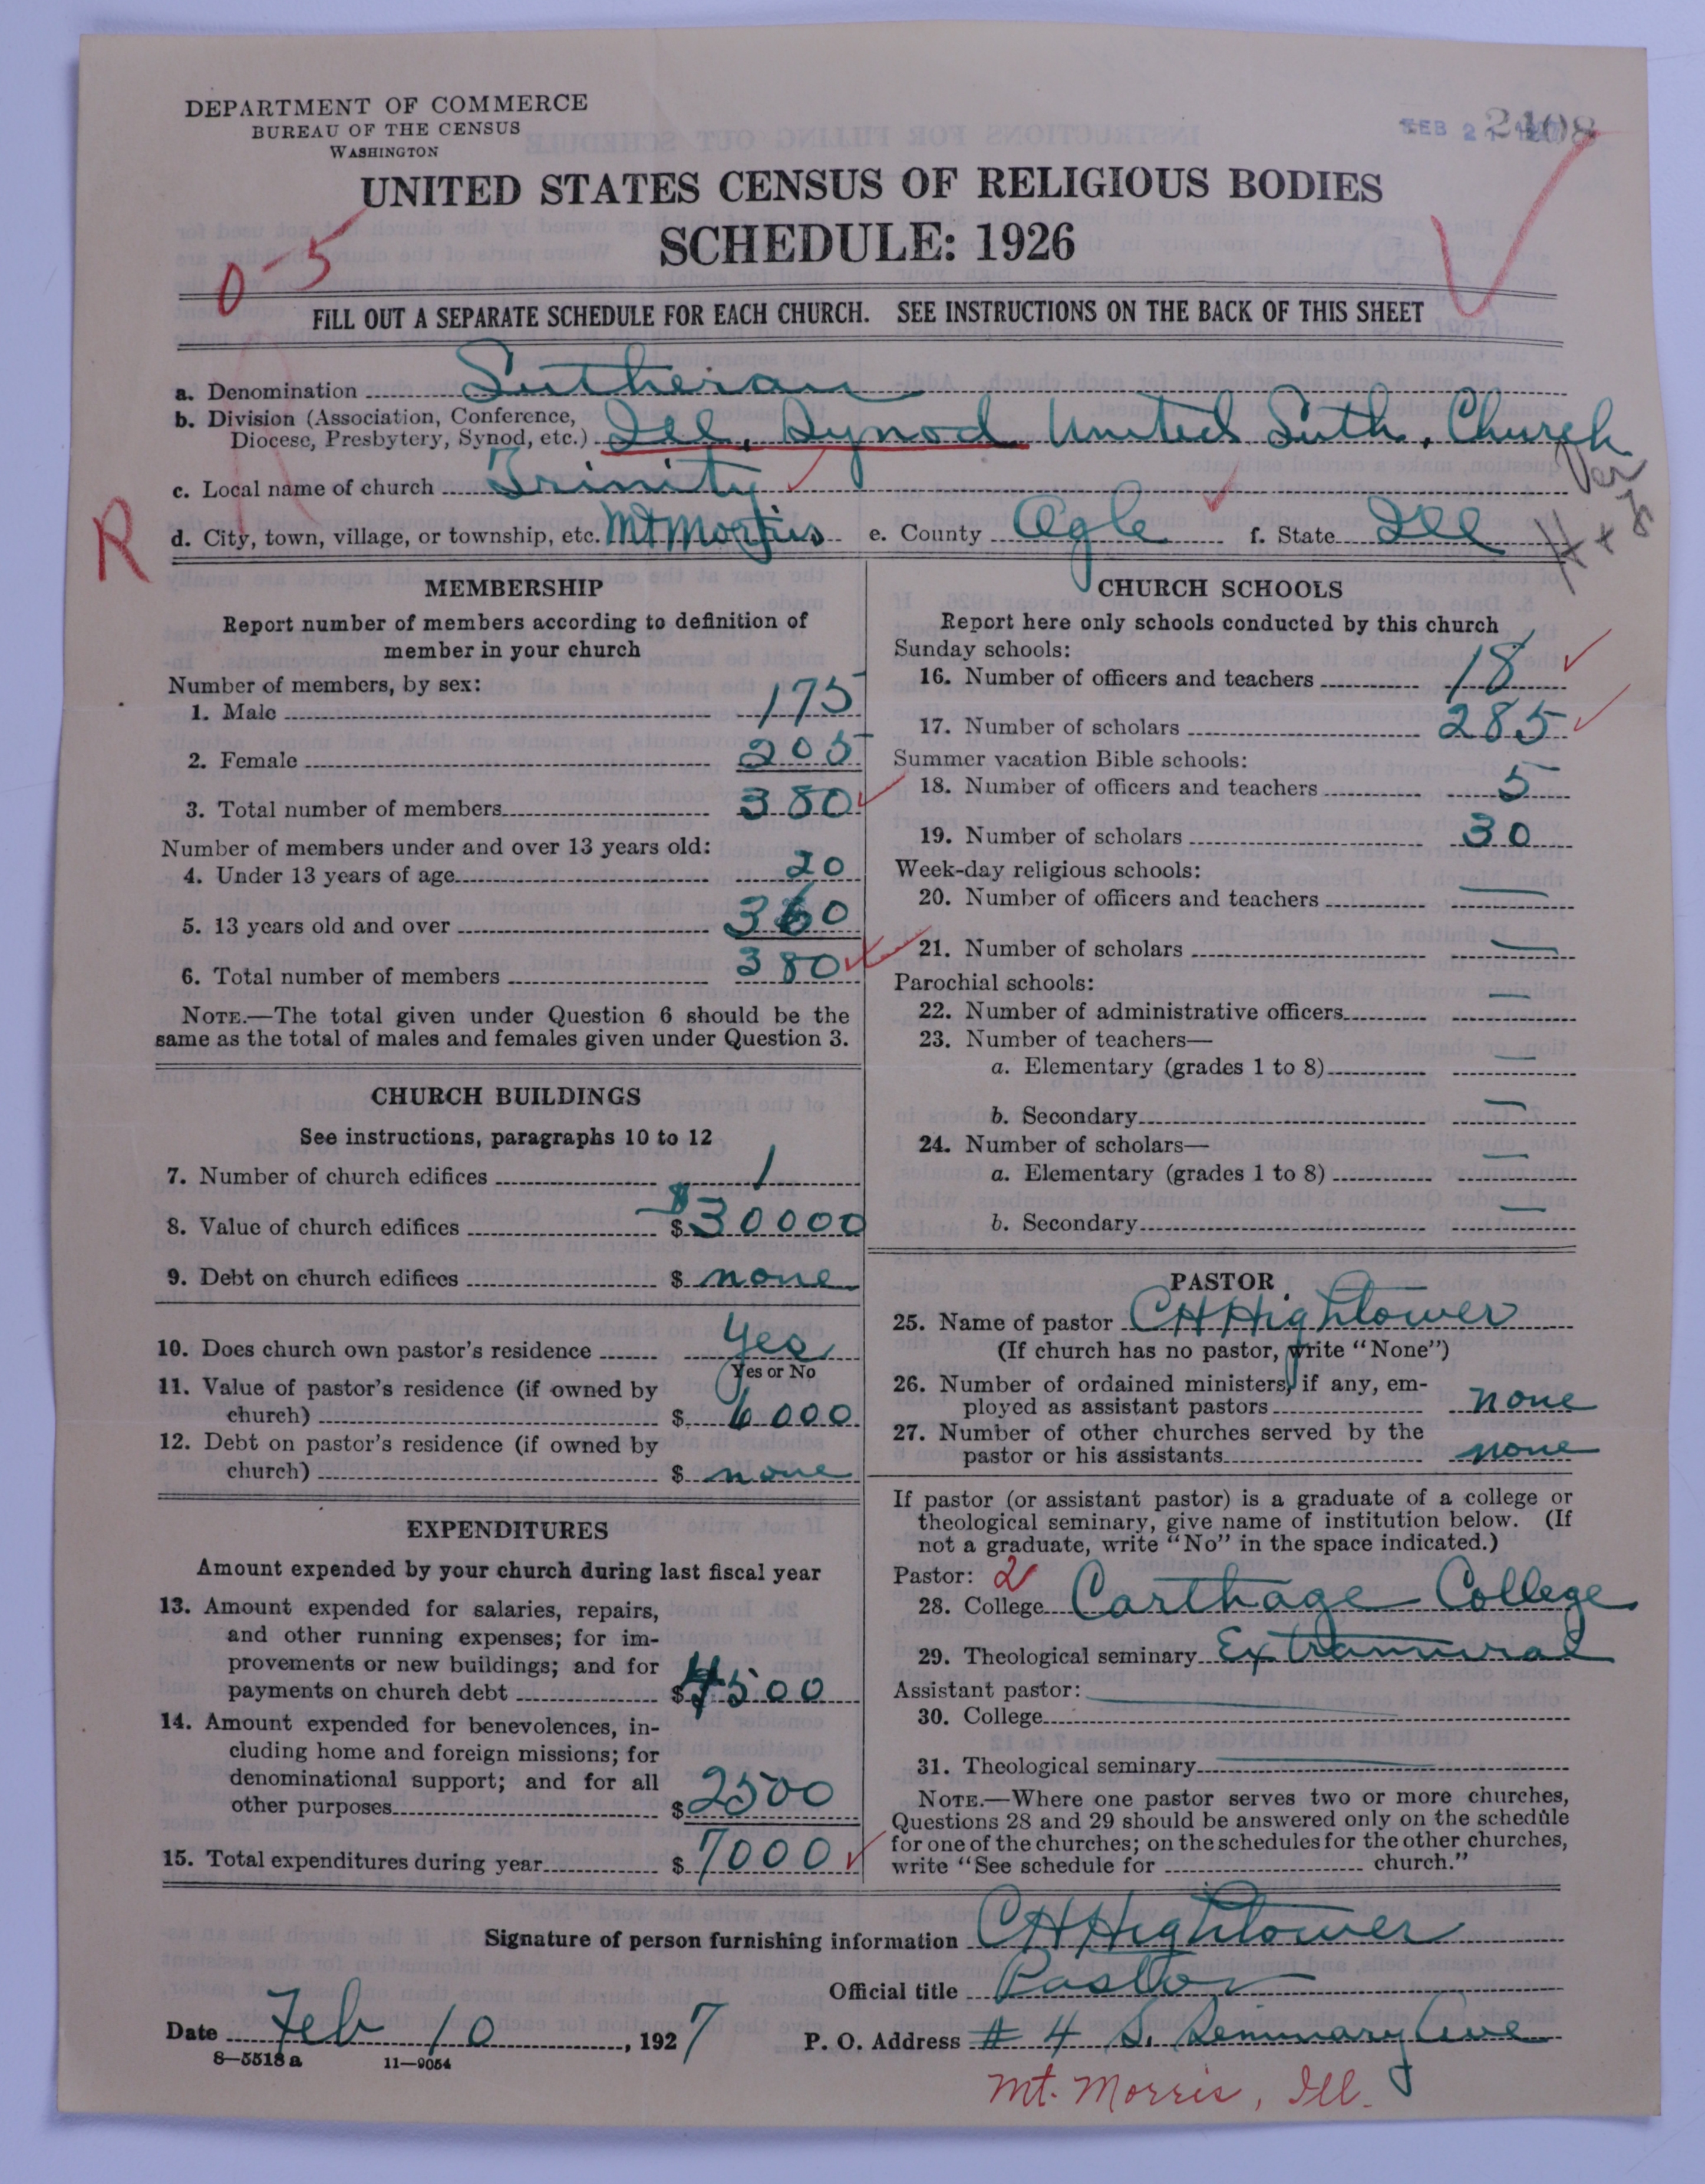 DEPARTMENT OF COMMERCE
BUREAU OF THE CENSUS
WASHINGTON
FEB 2 2408
UNITED STATES CENSUS OF RELIGIOUS BODIES
SCHEDULE: 1926
0-5
FILL OUT A SEPARATE SCHEDULE FOR EACH CHURCH. SEE INSTRUCTIONS ON THE BACK OF THIS SHEET
a. Denomination Lutheran
b. Division (Association, Conference, Diocese, Presbytery, Synod, etc.) Ill. Synod United Luth. Church
c. Local name of church Trinity
Ver
R
d. City, town, village, or township, etc. Mt Morris e. County Ogle f. State Ill
MEMBERSHIP
Report number of members according to definition of
member in your church
Number of members, by sex:
1. Male 175
2. Female 205
3. Total number of members 380
Number of members under and over 13 years old:
4. Under 13 years of age 20
5. 13 years old and over 360
6. Total number of members 380
NOTE.—The total given under Question 6 should be the
same as the total of males and females given under Question 3.
CHURCH BUILDINGS
See instructions, paragraphs 10 to 12
7. Number of church edifices 1
8. Value of church edifices $ $30000
9. Debt on church edifices $ none
10. Does church own pastor's residence Yes
Yes or No
11. Value of pastor's residence (if owned by
church) $ 6000
12. Debt on pastor's residence (if owned by
church) $ none
EXPENDITURES
Amount expended by your church during last fiscal year
13. Amount expended for salaries, repairs,
and other running expenses; for im-
provements or new buildings; and for
payments on church debt $ 4500
14. Amount expended for benevolences, in-
cluding home and foreign missions; for
denominational support; and for all
other purposes $ 2500
15. Total expenditures during year $ 7000
CHURCH SCHOOLS
Report here only schools conducted by this church
Sunday schools:
16. Number of officers and teachers 18
17. Number of scholars 285
Summer vacation Bible schools:
18. Number of officers and teachers 5
19. Number of scholars 30
Week-day religious schools:
20. Number of officers and teachers —
21. Number of scholars —
Parochial schools:
22. Number of administrative officers —
23. Number of teachers—
a. Elementary (grades 1 to 8) —
b. Secondary —
24. Number of scholars—
a. Elementary (grades 1 to 8) —
b. Secondary —
PASTOR
25. Name of pastor C H Hightower
(If church has no pastor, write "None")
26. Number of ordained ministers, if any, em-
ployed as assistant pastors none
27. Number of other churches served by the
pastor or his assistants none
If pastor (or assistant pastor) is a graduate of a college or
theological seminary, give name of institution below. (If
not a graduate, write "No" in the space indicated.)
Pastor: 2
28. College Carthage College
29. Theological seminary Extramural
Assistant pastor:
30. College
31. Theological seminary
NOTE.—Where one pastor serves two or more churches,
Questions 28 and 29 should be answered only on the schedule
for one of the churches; on the schedules for the other churches,
write "See schedule for church."
Signature of person furnishing information C H Hightower
Official title Pastor
Date Feb 10, 1927 P. O. Address # 4 S. Seminary Ave
8—5518 a 11—9054
Mt. Morris, Ill.